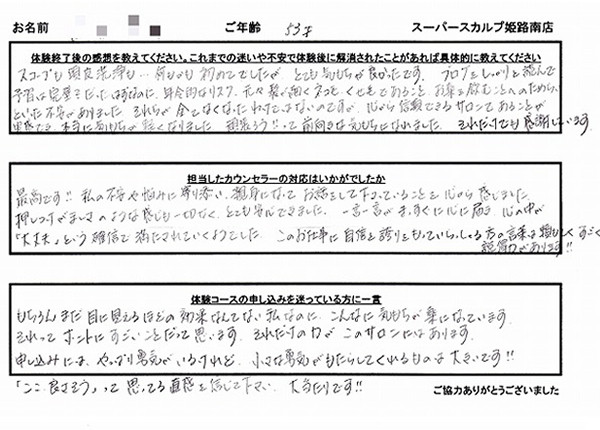 お名前 ご年齢 53才 スーパースカルプ姫路南店
体験終了後の感想を教えてください。これまでの迷いや不安で体験後に解消されたことがあれば具体的に教えてください
スコープも頭皮洗浄も…何もかも初めてでしたが、とても気もちが良かったです。ブログをしっかりと読んで
予習は完璧だったはずなのに、年令的なリスク、元々髪が細くネコっ毛であること、お薬を飲むことへのためらい、
といった不安がありました。それらが全てなくなったわけではないのですが、心から信頼できるサロンであることが
実感でき、本当に気もちが軽くなりました。頑張ろう!!って前向きな気もちになれました。それだけでも感謝しています。
担当したカウンセラーの対応はいかがでしたか
最高です!! 私の不安や悩みに寄り添い、親身になってお話をして下さっていることを心から感じました。
押しつけがましさのような感じも一切なく、とても安心できました。一言一言がまっすぐに心に届き、心の中が
「大丈夫」という確信で満たされていくようでした。このお仕事に自信と誇りをもっていらっしゃる方の言葉は頼もしく、すごく
説得力があります!!
体験コースの申し込みを迷っている方に一言
もちろんまだ目に見えるほどの効果なんてない私なのに、こんなに気もちが楽になっています。
それってホントにすごいことだって思います。それだけの力がこのサロンにはあります。
申し込みには、やっぱり勇気がいるけれど、小さな勇気がもたらしてくれるものは大きいです!!
「ここ良さそう」って思ってる直感を信じて下さい。大当たりです!!
ご協力ありがとうございました